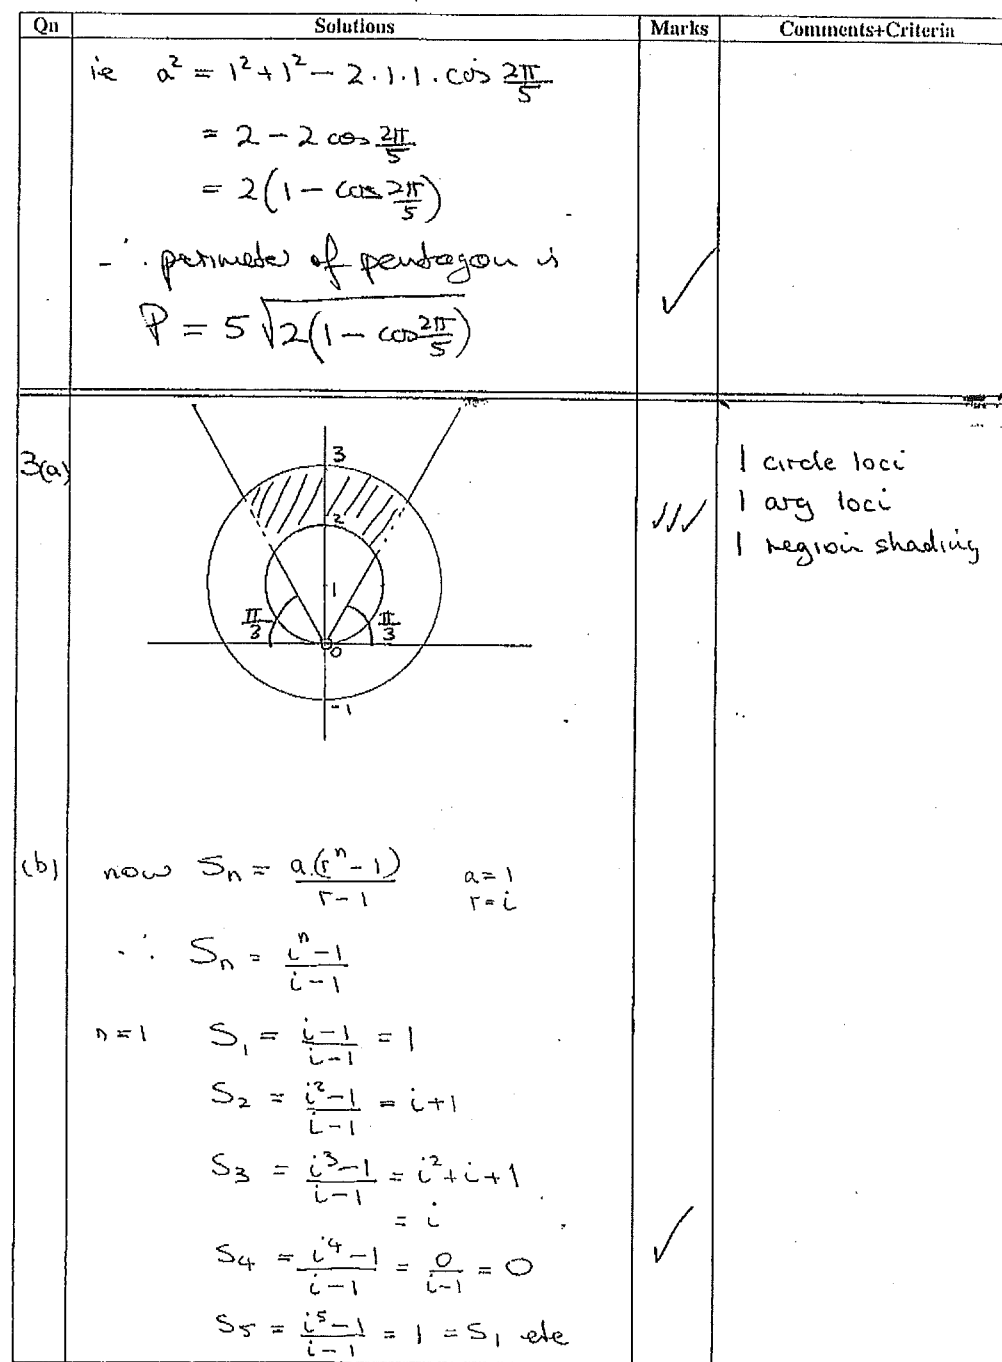 Qn Solutions Marks Comments+Criteria
ie a² = 1² + 1² - 2.1.1. cos 2π/5
= 2 - 2 cos 2π/5
= 2(1 - cos 2π/5)
∴ perimeter of pentagon is
P = 5 √2(1 - cos 2π/5)
✓
3(a)
3
2
1
π/3 π/3
0
-1
✓✓✓
1 circle loci
1 arg loci
1 region shading
(b) now Sn = a.(rⁿ - 1)/(r - 1) a = 1
r = i
∴ Sn = (iⁿ - 1)/(i - 1)
n = 1 S₁ = (i - 1)/(i - 1) = 1
S₂ = (i² - 1)/(i - 1) = i + 1
S₃ = (i³ - 1)/(i - 1) = i² + i + 1
= i
S₄ = (i⁴ - 1)/(i - 1) = 0/(i - 1) = 0 ✓
S₅ = (i⁵ - 1)/(i - 1) = 1 = S₁ etc